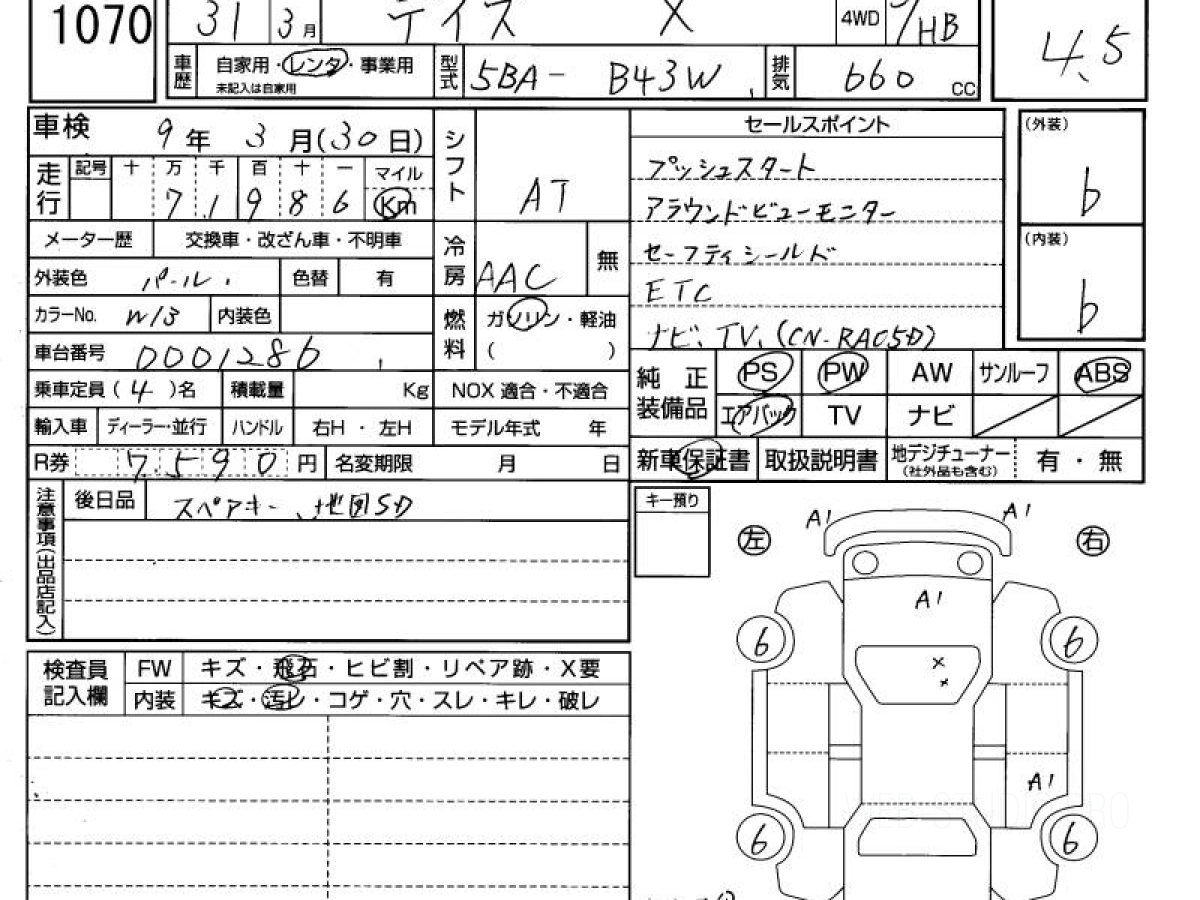 1070
31 3月 デイズ X 4WD 5/HB
車歴 自家用・レンタ・事業用
未記入は自家用
型式 5BA- B43W 排気 660 CC
4.5
車検 9年 3月(30日)
走行 記号 十 万 千 百 十 一 マイル
7,1 9 8 6 Km
シフト AT
メーター歴 交換車・改ざん車・不明車
外装色 パール 色替 有
冷房 AAC 無
カラーNo. W13 内装色
燃料 ガソリン・軽油
( )
車台番号 0001286
乗車定員(4)名 積載量 Kg NOX 適合・不適合
輸入車 ディーラー・並行 ハンドル 右H ・ 左H モデル年式 年
R券 7,590 円 名変期限 月 日
セールスポイント
プッシュスタート
アラウンドビューモニター
セーフティシールド
ETC
ナビ、TV、(CN-RA05D)
(外装)
b
(内装)
b
純正装備品 PS PW AW サンルーフ ABS
エアバック TV ナビ
新車保証書 取扱説明書 地デジチューナー
(社外品も含む) 有 ・ 無
注意事項(出品店記入) 後日品 スペアキー、地図SD
キー預り
左 A1 A1 右
A1
6 6
× ×
A1
6 6
検査員記入欄 FW キズ・飛石・ヒビ割・リペア跡・X要
内装 キズ・汚レ・コゲ・穴・スレ・キレ・破レ